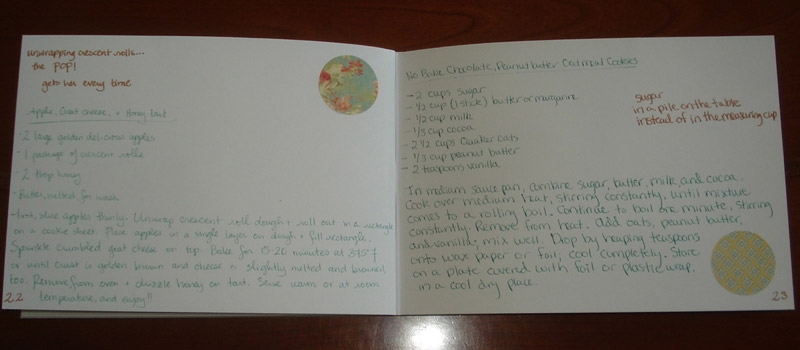 unwrapping crescent rolls...
the POP!
gets her every time
Apple, Goat cheese, + Honey tart
- 2 large golden delicious apples
- 1 package of crescent rolls
- 2 tbsp honey
- Butter, melted, for wash
First, slice apples thinly. Unwrap crescent roll dough + roll out in a rectangle
on a cookie sheet. Place apples in a single layer on dough + fill rectangle.
Sprinkle crumbled goat cheese on top. Bake for 15-20 minutes at 375°F
or until crust is golden brown and cheese is slightly melted and browned,
too. Remove from oven + drizzle honey on tart. Serve warm or at room
temperature, and enjoy!!
22
No Bake Chocolate, Peanut butter Oatmeal Cookies
- 2 cups sugar
- 1/2 cup (1 stick) butter or margarine
- 1/2 cup milk
- 1/3 cup cocoa
- 2 1/2 cups Quaker oats
- 1/3 cup peanut butter
- 2 teaspoons vanilla
sugar
in a pile on the table
instead of in the measuring cup
In medium sauce pan, combine sugar, butter, milk, and cocoa.
Cook over medium heat, stirring constantly, until mixture
comes to a rolling boil. Continue to boil one minute, stirring
constantly. Remove from heat. Add oats, peanut butter,
and vanilla; mix well. Drop by heaping teaspoons
onto wax paper or foil, cool completely. Store
on a plate covered with foil or plastic wrap.
in a cool dry place.
23